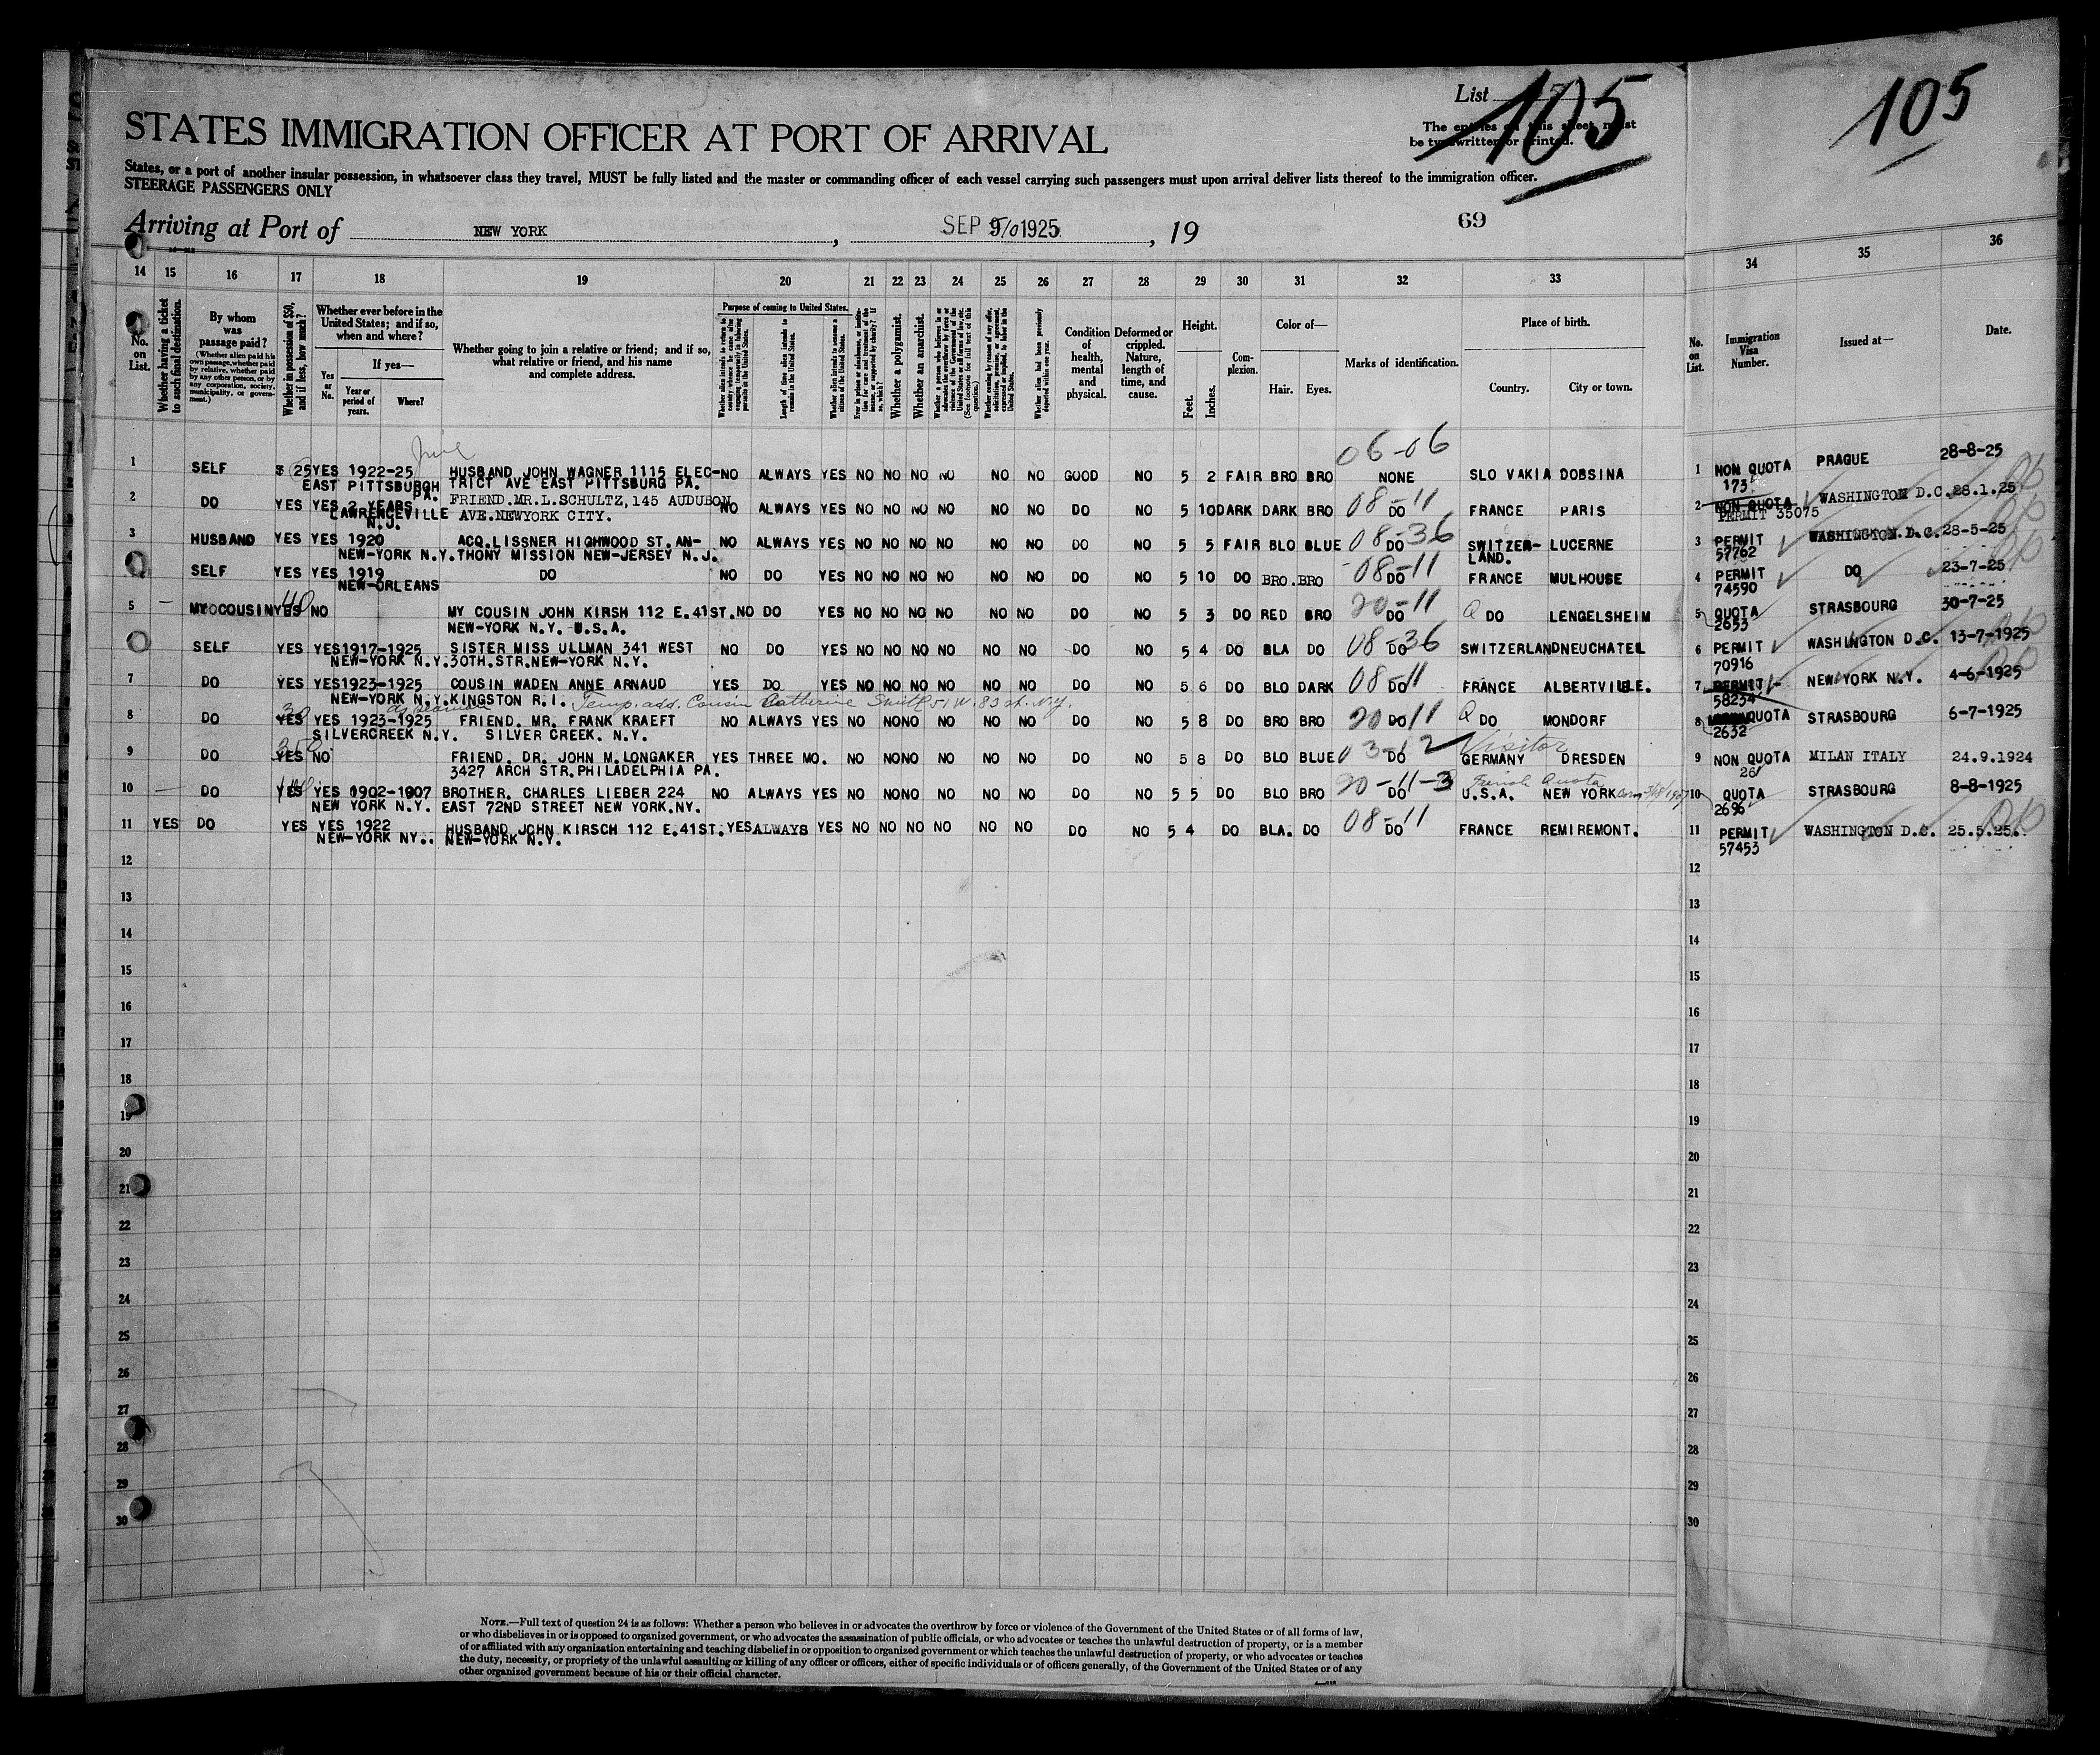 List
105
105
STATES IMMIGRATION OFFICER AT PORT OF ARRIVAL
The entries on this sheet must
be typewritten or printed.
States, or a port of another insular possession, in whatsoever class they travel, MUST be fully listed and the master or commanding officer of each vessel carrying such passengers must upon arrival deliver lists thereof to the immigration officer.
STEERAGE PASSENGERS ONLY
Arriving at Port of NEW YORK, SEP 1925, 19
69
14 15 16 17 18 19 20 21 22 23 24 25 26 27 28 29 30 31 32 33 34 35 36
No. on List.
Whether having a ticket to such final destination.
By whom was passage paid?
(Whether alien paid his own passage, whether paid by relative, whether paid by any other person, or by any corporation, society, municipality, or government.)
Whether in possession of $50, and if less, how much?
Whether ever before in the United States; and if so, when and where?
Yes or No.
If yes—
Year or period of years.
Where?
Whether going to join a relative or friend; and if so, what relative or friend, and his name and complete address.
Purpose of coming to United States.
Length of time alien intends to remain in the United States.
Whether alien intends to become a citizen of the United States.
Whether a polygamist.
Whether an anarchist.
Whether alien had been previously deported within one year.
Condition of health, mental and physical.
Deformed or crippled. Nature, length of time, and cause.
Height.
Feet. Inches.
Complexion.
Color of—
Hair. Eyes.
Marks of identification.
Place of birth.
Country. City or town.
No. on List.
Immigration Visa Number.
Issued at—
Date.
June
06-06
1 SELF $ 25 YES 1922-25 HUSBAND JOHN WAGNER 1115 ELEC- NO ALWAYS YES NO NO NO NO NO NO GOOD NO 5 2 FAIR BRO BRO NONE SLO VAKIA DOBSINA 1 NON QUOTA PRAGUE 28-8-25
EAST PITTSBURGH PA. TRICT AVE EAST PITTSBURG PA. 173
2 DO YES YES 2 YEARS FRIEND.MR.L.SCHULTZ,145 AUDUBON NO ALWAYS YES NO NO NO NO NO NO DO NO 5 10 DARK DARK BRO 08-11 DO FRANCE PARIS 2 NON QUOTA WASHINGTON D.C. 28.1.25
LAWRENCEVILLE N.J. AVE.NEWYORK CITY. PERMIT 35075
3 HUSBAND YES YES 1920 ACQ.LISSNER HIGHWOOD ST.AN- NO ALWAYS YES NO NO NO NO NO NO DO NO 5 5 FAIR BLO BLUE 08-36 DO SWITZER- LUCERNE 3 PERMIT WASHINGTON.D.C. 28-5-25
NEW-YORK N.Y. THONY MISSION NEW-JERSEY N.J. LAND. 57762
SELF YES YES 1919 DO NO DO YES NO NO NO NO NO NO DO NO 5 10 DO BRO. BRO 08-11 DO FRANCE MULHOUSE 4 PERMIT DO 23-7-25
NEW-ORLEANS 74590
5 — MY COUSIN YES NO MY COUSIN JOHN KIRSH 112 E.41ST. NO DO YES NO NO NO NO NO NO DO NO 5 3 DO RED BRO 20-11 DO Q DO LENGELSHEIM 5 QUOTA STRASBOURG 30-7-25
NEW-YORK N.Y. U.S.A. 2653
SELF YES YES 1917-1925 SISTER MISS ULLMAN 341 WEST NO DO YES NO NO NO NO NO NO DO NO 5 4 DO BLA DO 08-36 DO SWITZERLAND NEUCHATEL 6 PERMIT WASHINGTON D.C. 13-7-1925
NEW-YORK N.Y. 30TH.STR.NEW-YORK N.Y. 70916
7 DO YES YES 1923-1925 COUSIN WADEN ANNE ARNAUD YES DO YES NO NO NO NO NO NO DO NO 5 6 DO BLO DARK 08-11 DO FRANCE ALBERTVILLE. 7 PERMIT NEW YORK N.Y. 4-6-1925
NEW-YORK N.Y. KINGSTON R.I. Temp. add. Cousin Catherine Smith 51 W. 83 st. N.Y. 58234
as seaman
8 DO YES YES 1923-1925 FRIEND. MR. FRANK KRAEFT NO ALWAYS YES NO NO NO NO NO NO DO NO 5 8 DO BRO BRO 20 DO 11 Q DO MONDORF 8 QUOTA STRASBOURG 6-7-1925
SILVERCREEK N.Y. SILVER CREEK. N.Y. 2632
9 DO YES NO FRIEND. DR. JOHN M.LONGAKER YES THREE MO. NO NO NO NO NO NO DO NO 5 8 DO BLO BLUE 03-12 DO Visitor GERMANY DRESDEN 9 NON QUOTA MILAN ITALY 24.9.1924
3427 ARCH STR.PHILADELPHIA PA. 26
10 — DO YES YES 1902-1907 BROTHER. CHARLES LIEBER 224 NO ALWAYS YES NO NO NO NO NO NO DO NO 5 5 DO BLO BRO 20-11-3 DO French Quota U.S.A. NEW YORK 10 QUOTA STRASBOURG 8-8-1925
NEW YORK N.Y. EAST 72ND STREET NEW YORK.NY. 2696
11 YES DO YES YES 1922 HUSBAND JOHN KIRSCH 112 E.41ST. YES ALWAYS YES NO NO NO NO NO NO DO NO 5 4 DO BLA. DO 08-11 DO FRANCE REMIREMONT. 11 PERMIT WASHINGTON D.C. 25.5.25.
NEW-YORK NY.. NEW-YORK N.Y. 57453
12 12
13 13
14 14
15 15
16 16
17 17
18 18
19 19
20 20
21 21
22 22
23 23
24 24
25 25
26 26
27 27
28 28
29 29
30 30
NOTE.—Full text of question 24 is as follows: Whether a person who believes in or advocates the overthrow by force or violence of the Government of the United States or of all forms of law,
or who disbelieves in or is opposed to organized government, or who advocates the assassination of public officials, or who advocates or teaches the unlawful destruction of property, or is a member
of or affiliated with any organization entertaining and teaching disbelief in or opposition to organized government or which teaches the unlawful destruction of property, or who advocates or teaches
the duty, necessity, or propriety of the unlawful assaulting or killing of any officer or officers, either of specific individuals or of officers generally, of the Government of the United States or of any
other organized government because of his or their official character.